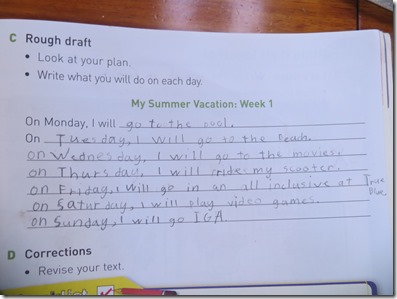 C Rough draft
• Look at your plan.
• Write what you will do on each day.
My Summer Vacation: Week 1
On Monday, I will go to the pool.
On Tuesday, I will go to the Beach.
on Wednesday, I will go to the movies.
on Thursday, I will ride my scooter.
on Friday, I will go in an all inclusive at True
Blue
on Saturday, I will play video games.
on Sunday, I will go IGA.
D Corrections
• Revise your text.